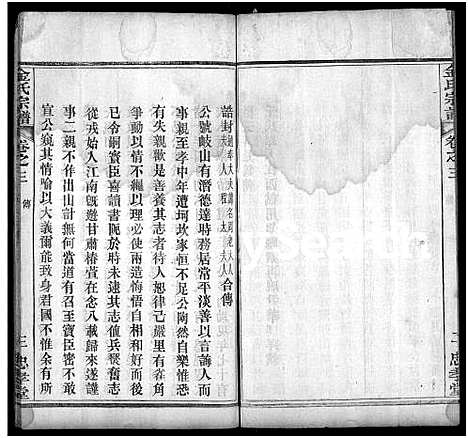 金氏宗譜
卷之三
三
忠孝堂
誥封
合傳
公號岐山有潛德達時務居常平淡善以言誨人
事親至孝中年遭坷坎家恒不足公陶然自樂惟恐
有失親歡是善養其志者待人恕律己嚴里有雀角
爭勸以情不明理不服必使兩造悔悟自相和好而後
已令嗣寳臣喜讀書阨於時未遂其志值兵燹奮志
從戎始入江南旣遊甘肅椿萱在念八載歸來遂謹
事二親不作出山計無何當道有召之者寳臣密不以
宣公窺其情喻以大義爾能致身君國不惟余有所
金氏宗譜
卷之三
傳
三
忠孝堂